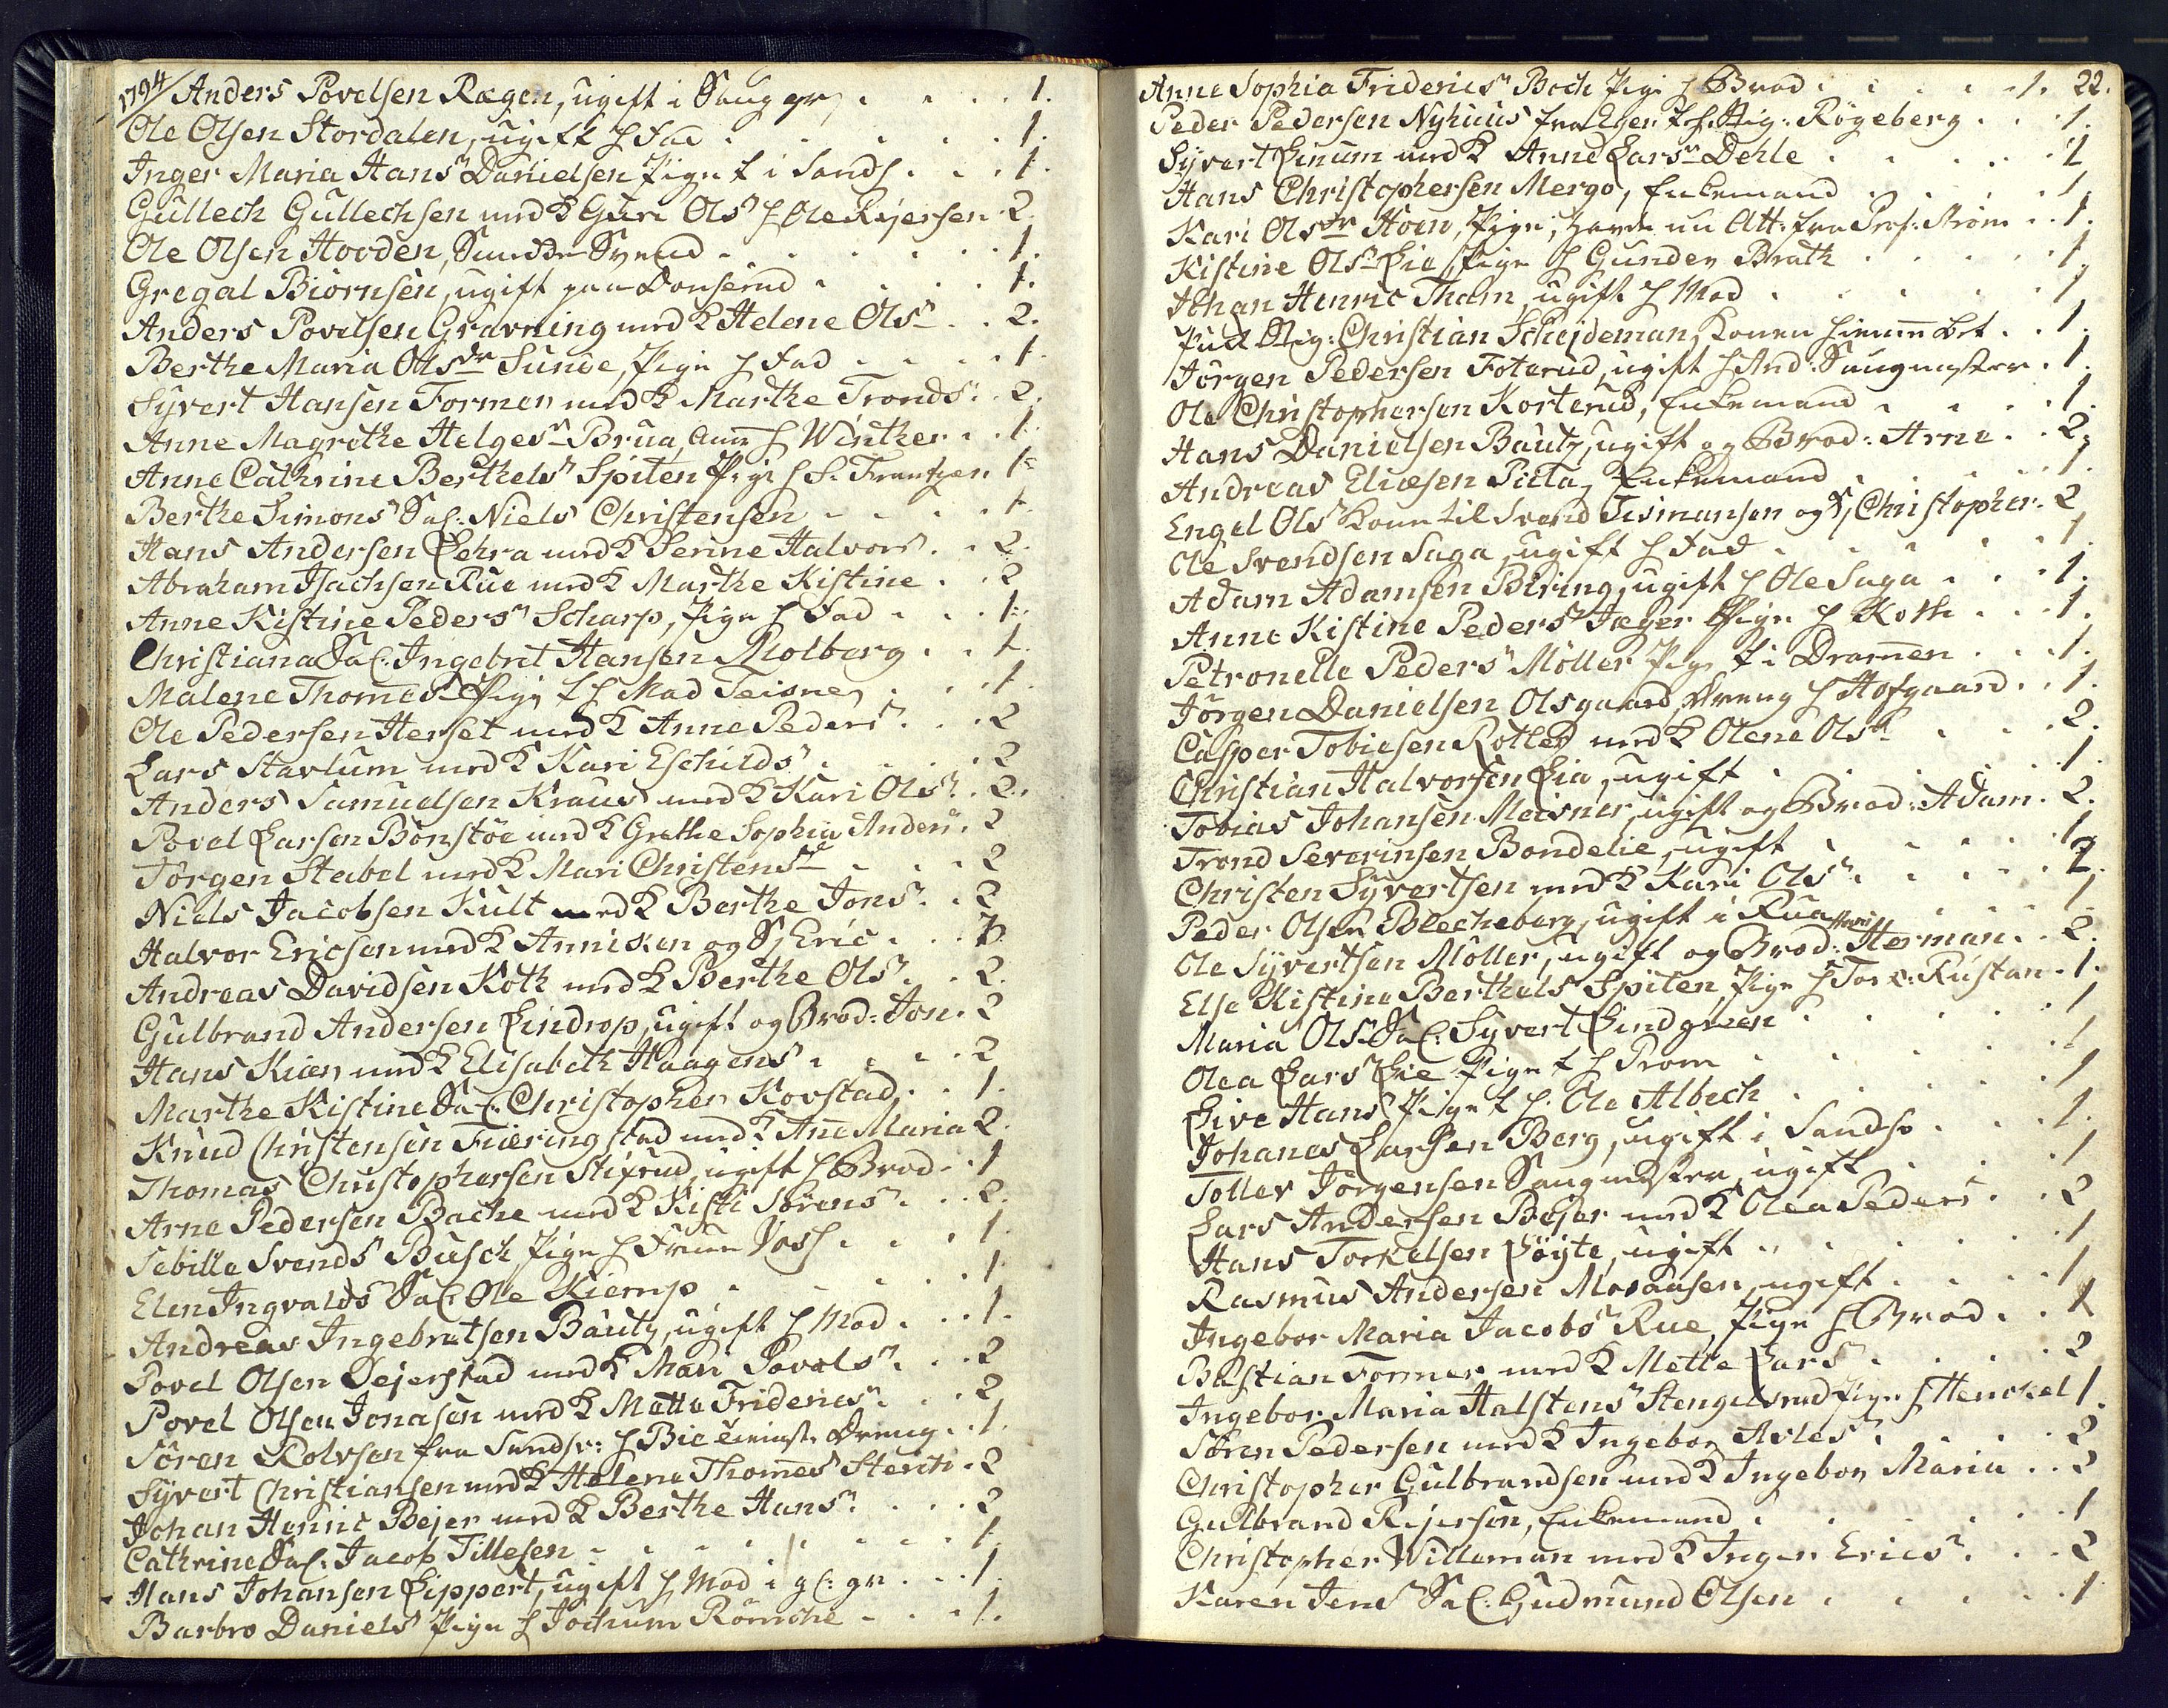 1794/ Anders Povelsen Rægen, ugift i Saug gr. 1.
Ole Olsen Stordalen, ugift h Fad 1.
Inger Maria Hansr Danielsen Pige t i Sands 1.
Gullech Gullechsen med K Guri Olsr h Ole Rejersen 2.
Ole Olsen Hovden, Svend 1.
Gregal Biørnsen, ugift paa Donserud 1.
Anders Povelsen Gravning med K Helene Olsr 2.
Berthe Maria Olsdr Sunde, Pige h Fad 1.
Syvert Hansen Formen med K Marthe Tronds 2.
Anne Magrethe Helgesr Brua, h Winther 1.
Anne Cathrine Berthelsr Spiten Pige h S. Frantzen 1
Berthe Simonsr Sal. Niels Christensen 1
Hans Andersen Lehra med K Serine Halvors 2.
Abraham Isachsen Rue med K Marthe Kistine 2
Anne Kistine Pedersr Scharp, Pige h Fad 1
Christiana Sal. Ingebret Hansen Molberg 1.
Malene Thomesr Pige t h Mad Teisner 1
Ole Pedersen Herset med K Anne Pedersr 2
Lars Stavlum med K Kari Eschildsr 2
Anders Samuelsen Kraus med K Kari Olsr 2.
Povel Larsen Bonstøe med K Grethe Sophia Andersr 2
Jørgen Stabel med K Mari Christensr 2
Niels Jacobsen Kult med K Berthe Jonsr 2
Halvor Ericsen med K Anniken og S. Eric 3
Andreas Davidsen Koth med K Berthe Olsr 2.
Gulbrand Andersen Lindrop, ugift og Brod: Jon 2
Hans Kiær med K Elisabeth Haagensr 2
Marthe Kistine Sal. Christopher Kovstad 1.
Knud Christensen Fiæringstad med K Ane Maria 2.
Thomas Christophersen Stixrud, ugift h Brod 1
Arne Pedersen Bache med K Kisti Sørensr 2.
Sebille Svendsr Busch Pige h Frue Voss 1.
Elen Ingvaldsr Sal. Ole Kiemp 1.
Andreas Ingebretsen Bautz, ugift h Mod 1.
Povel Olsen Dejerstad med K Mari Povelsr 2
Povel Olsen Jonasen med K Mette Fridericsr 2
Sören Rolvsen fra Sandsv: h Bie Dreng 1.
Syvert Christiansen med K Helene Thomes Stenti 2
Johan Henric Bejer med K Berthe Hansr 2
Cathrine Sal. Jacob Tillesen 1
Hans Johansen Lippert, ugift h Mod i gl: gr 1.
Barbro Danielsr Pige h Jochum Römche 1.
Anne Sophia Fridericsr Boch Pige h Brod 1. 22.
Peder Pedersen Nyhuus fra Eger t h. Mig: Røgeberg 1.
Syvert Linum med K Anne Larsr Dehle 2
Hans Christophersen Mergo, Enkemand 1.
Kari Olsdr Hoen, Pige, havde nu Att: fra Prof: Ström 1.
Kistine Olsr Lie, Pige h Gunder Brath 1
Johan Henric Tham, ugift h Mod 1
Christian Scheideman, Konen 1.
Jörgen Pedersen Foterud, ugift h And: Saugmester 1.
Ole Christophersen Korterud, Enkemand 1.
Hans Danielsen Bautz, ugift og Brod: Arne 2.
Andreas Eliæsen Picta, Enkemand 1.
Engel Olsr Kone til Svend Tismansen og S. Christopher 2
Ole Svendsen Saga, ugift h Fad 1.
Adam Adamsen Biring, ugift h Ole Saga 1.
Anne Kistine Pedersr Jæger Pige h Koth 1.
Petronelle Pedersr Möller Pige t i Dramen 1.
Jörgen Danielsen Olsgaard, Dreng h Hofgaard 1.
Casper Tobiesen Rotler med K Olene Olsr 2.
Christian Halvorsen Lia, ugift 1
Tobias Johansen Meisner, ugift og Brod: Adam 2.
Trond Severinsen Bondelie, ugift 1
Christen Syvertsen med K Kari Olsr 2.
Peder Olsen Blecheberg, ugift i Rua 1
Ole Syvertsen Möller, ugift og Brod: Herman 2.
Else Kistine Berthelsr Spiten, Pige h Tore Rustan 1.
Maria Olsr Sal. Syvert Lindgreen 1
Olea Larsr Lie Pige t h Prom 1
Live Hansr Pige t h: Ole Albech 1
Johanes Larsen Berg, ugift i Sandsv 1.
Tollev Jörgensen Saugmester, ugift 1
Lars Andersen Bejer med K Olea Pedersr 2
Hans Torkelsen Løgte, ugift 1
Rasmus Andersen Mosaasen, ugift 1
Ingebor Maria Jacobsr Rue, Pige h Brod 1
Bastian Former med K Mette Larsr 2
Ingebor Maria Halstensr Stengelsrud Pige h Henckel 1.
Sören Pedersen med K Ingebor Avlesr 2
Christopher Gulbrandsen med K Ingebor Maria 2
Gulbrand Rejersen, Enkemand 1
Christopher Willeman med K Inger Ericsr 2
Karen Jensr Sal. Gudmund Olsen 1